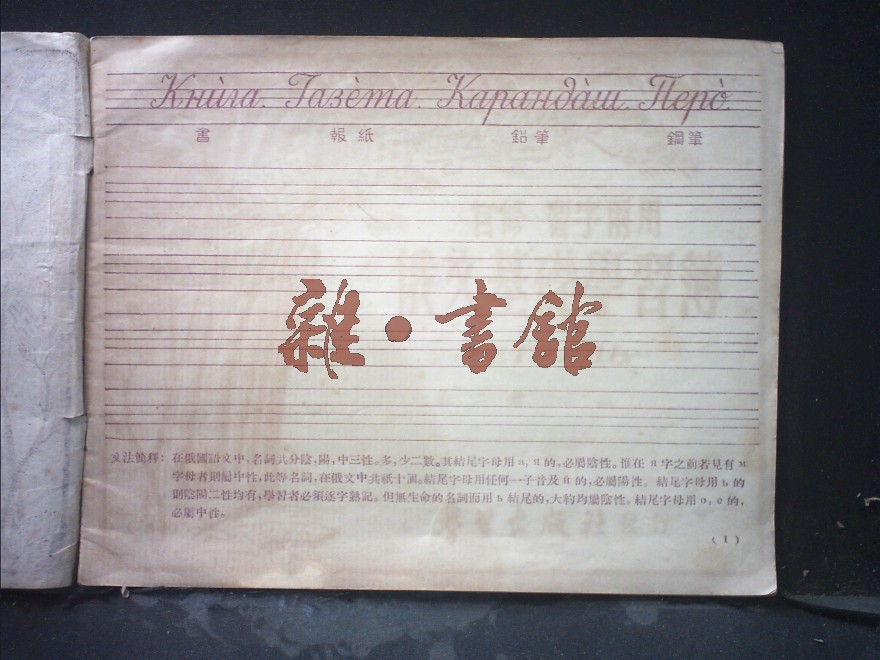 Кнѝга. Газѐта. Каранда̀ш. Перо̀.
書 報紙 鉛筆 鋼筆
雜·書館
文法簡釋：在俄國語文中，名詞共分陰，陽，中三性。多，少二數。其結尾字母用 а, я 的，必屬陰性。惟在 я 字之前若見有 м
字母者則屬中性，此等名詞，在俄文中共祇十個。結尾字母用任何一子音及 й 的，必屬陽性。結尾字母用 ь 的
則陰陽二性均有，學習者必須逐字熟記。但無生命的名詞而用 ь 結尾的，大約均屬陰性。結尾字母用 о, е 的，
必屬中性。
（1）